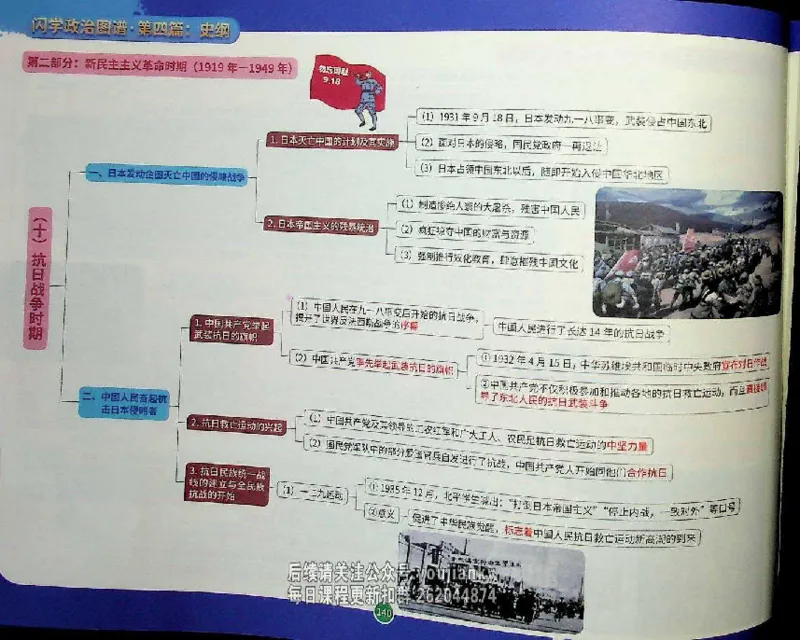 闪学政治图谱·第四篇：史纲
第二部分：新民主主义革命时期（1919年—1949年）
勿忘国耻
9.18
（十）抗日战争时期
一、日本发动企图灭亡中国的侵略战争
1. 日本灭亡中国的计划及其实施
（1）1931年9月18日，日本发动九一八事变，武装侵占中国东北
（2）面对日本的侵略，国民党政府一再退让
（3）日本占领中国东北以后，随即开始入侵中国华北地区
2. 日本帝国主义的残暴统治
（1）制造惨绝人寰的大屠杀，残害中国人民
（2）疯狂掠夺中国的财富与资源
（3）强制推行奴化教育，肆意摧残中国文化
二、中国人民奋起抗
击日本侵略者
1. 中国共产党举起
武装抗日的旗帜
（1）中国人民在九一八事变后开始的抗日战争，
揭开了世界反法西斯战争的序幕
中国人民进行了长达14年的抗日战争
（2）中国共产党率先举起武装抗日的旗帜
①1932年4月15日，中华苏维埃共和国临时中央政府宣布对日作战
②中国共产党不仅积极参加和推动各地的抗日救亡运动，而且直接领
导了东北人民的抗日武装斗争
2. 抗日救亡运动的兴起
（1）中国共产党及其领导的工农红军和广大工人、农民是抗日救亡运动的中坚力量
（2）国民党军队中的部分爱国官兵自发进行了抗战，中国共产党人开始同他们合作抗日
3. 抗日民族统一战
线的建立与全民族
抗战的开始
（1）一二九运动
①1935年12月，北平学生喊出：“打倒日本帝国主义”“停止内战，一致对外”等口号
②意义
促进了中华民族觉醒，标志着中国人民抗日救亡运动新高潮的到来
后续请关注公众号：youjianxy
每日课程更新扣群 262044874
140